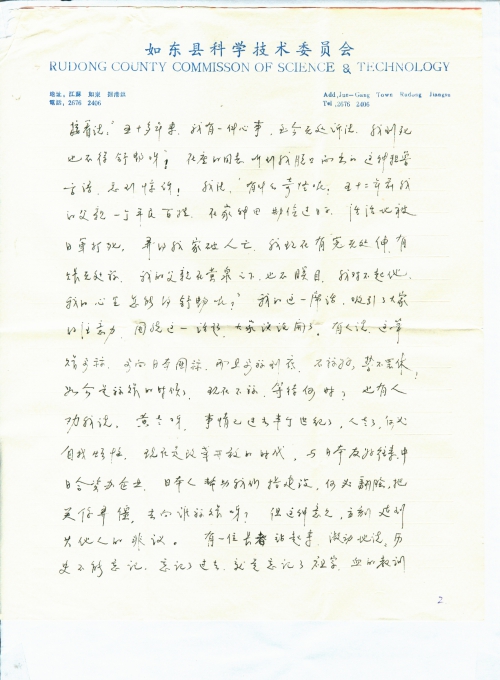 如东县科学技术委员会
RUDONG COUNTY COMMISSON OF SCIENCE & TECHNOLOGY
地址：江苏 如东 掘港镇
電話：2676 2406
Add,Jue-Gang Town Rudong Jiangsu
Tel,2676 2406
接着说："五十多年来，我有一件心事，至今无处诉说，我到死
也不得舒畅呀！在座的同志听到我脱口而出的这种
言语，感到惊讶！我说："有什么奇怪呢？五十二年前我
的父亲一个平民百姓，在家种田 过日子，活活地被
日军打死，弄的我家破人亡，我现在有冤无处伸，有
怨无处诉，我的父亲在黄泉之下，也不瞑目，我对不起他，
我的心里怎能的舒畅呢？"我的这一席话，吸引了大家
的注意力，围绕这一话题，大家议论开了。有人说，这笔
债要讨，要向日本国讨，而且要讨到底，不讨好，誓不罢休，
如今是讨债的时候了，现在不讨，等待何时？也有人
劝我说，黄老呀，事情已过去半个世纪了，人老了，何必
自找 ，现在是改革开放的时代，与日本友好往来，中
日合资办企业，日本人帮助我们搞建设，何必翻脸，把
关系弄僵，去向谁讨债呀？但这种意见，立刻遭到
其他人的非议。有一位长者站起来，激动地说，历
史不能忘记，忘记了过去，就是忘记了祖宗，血的教训
2